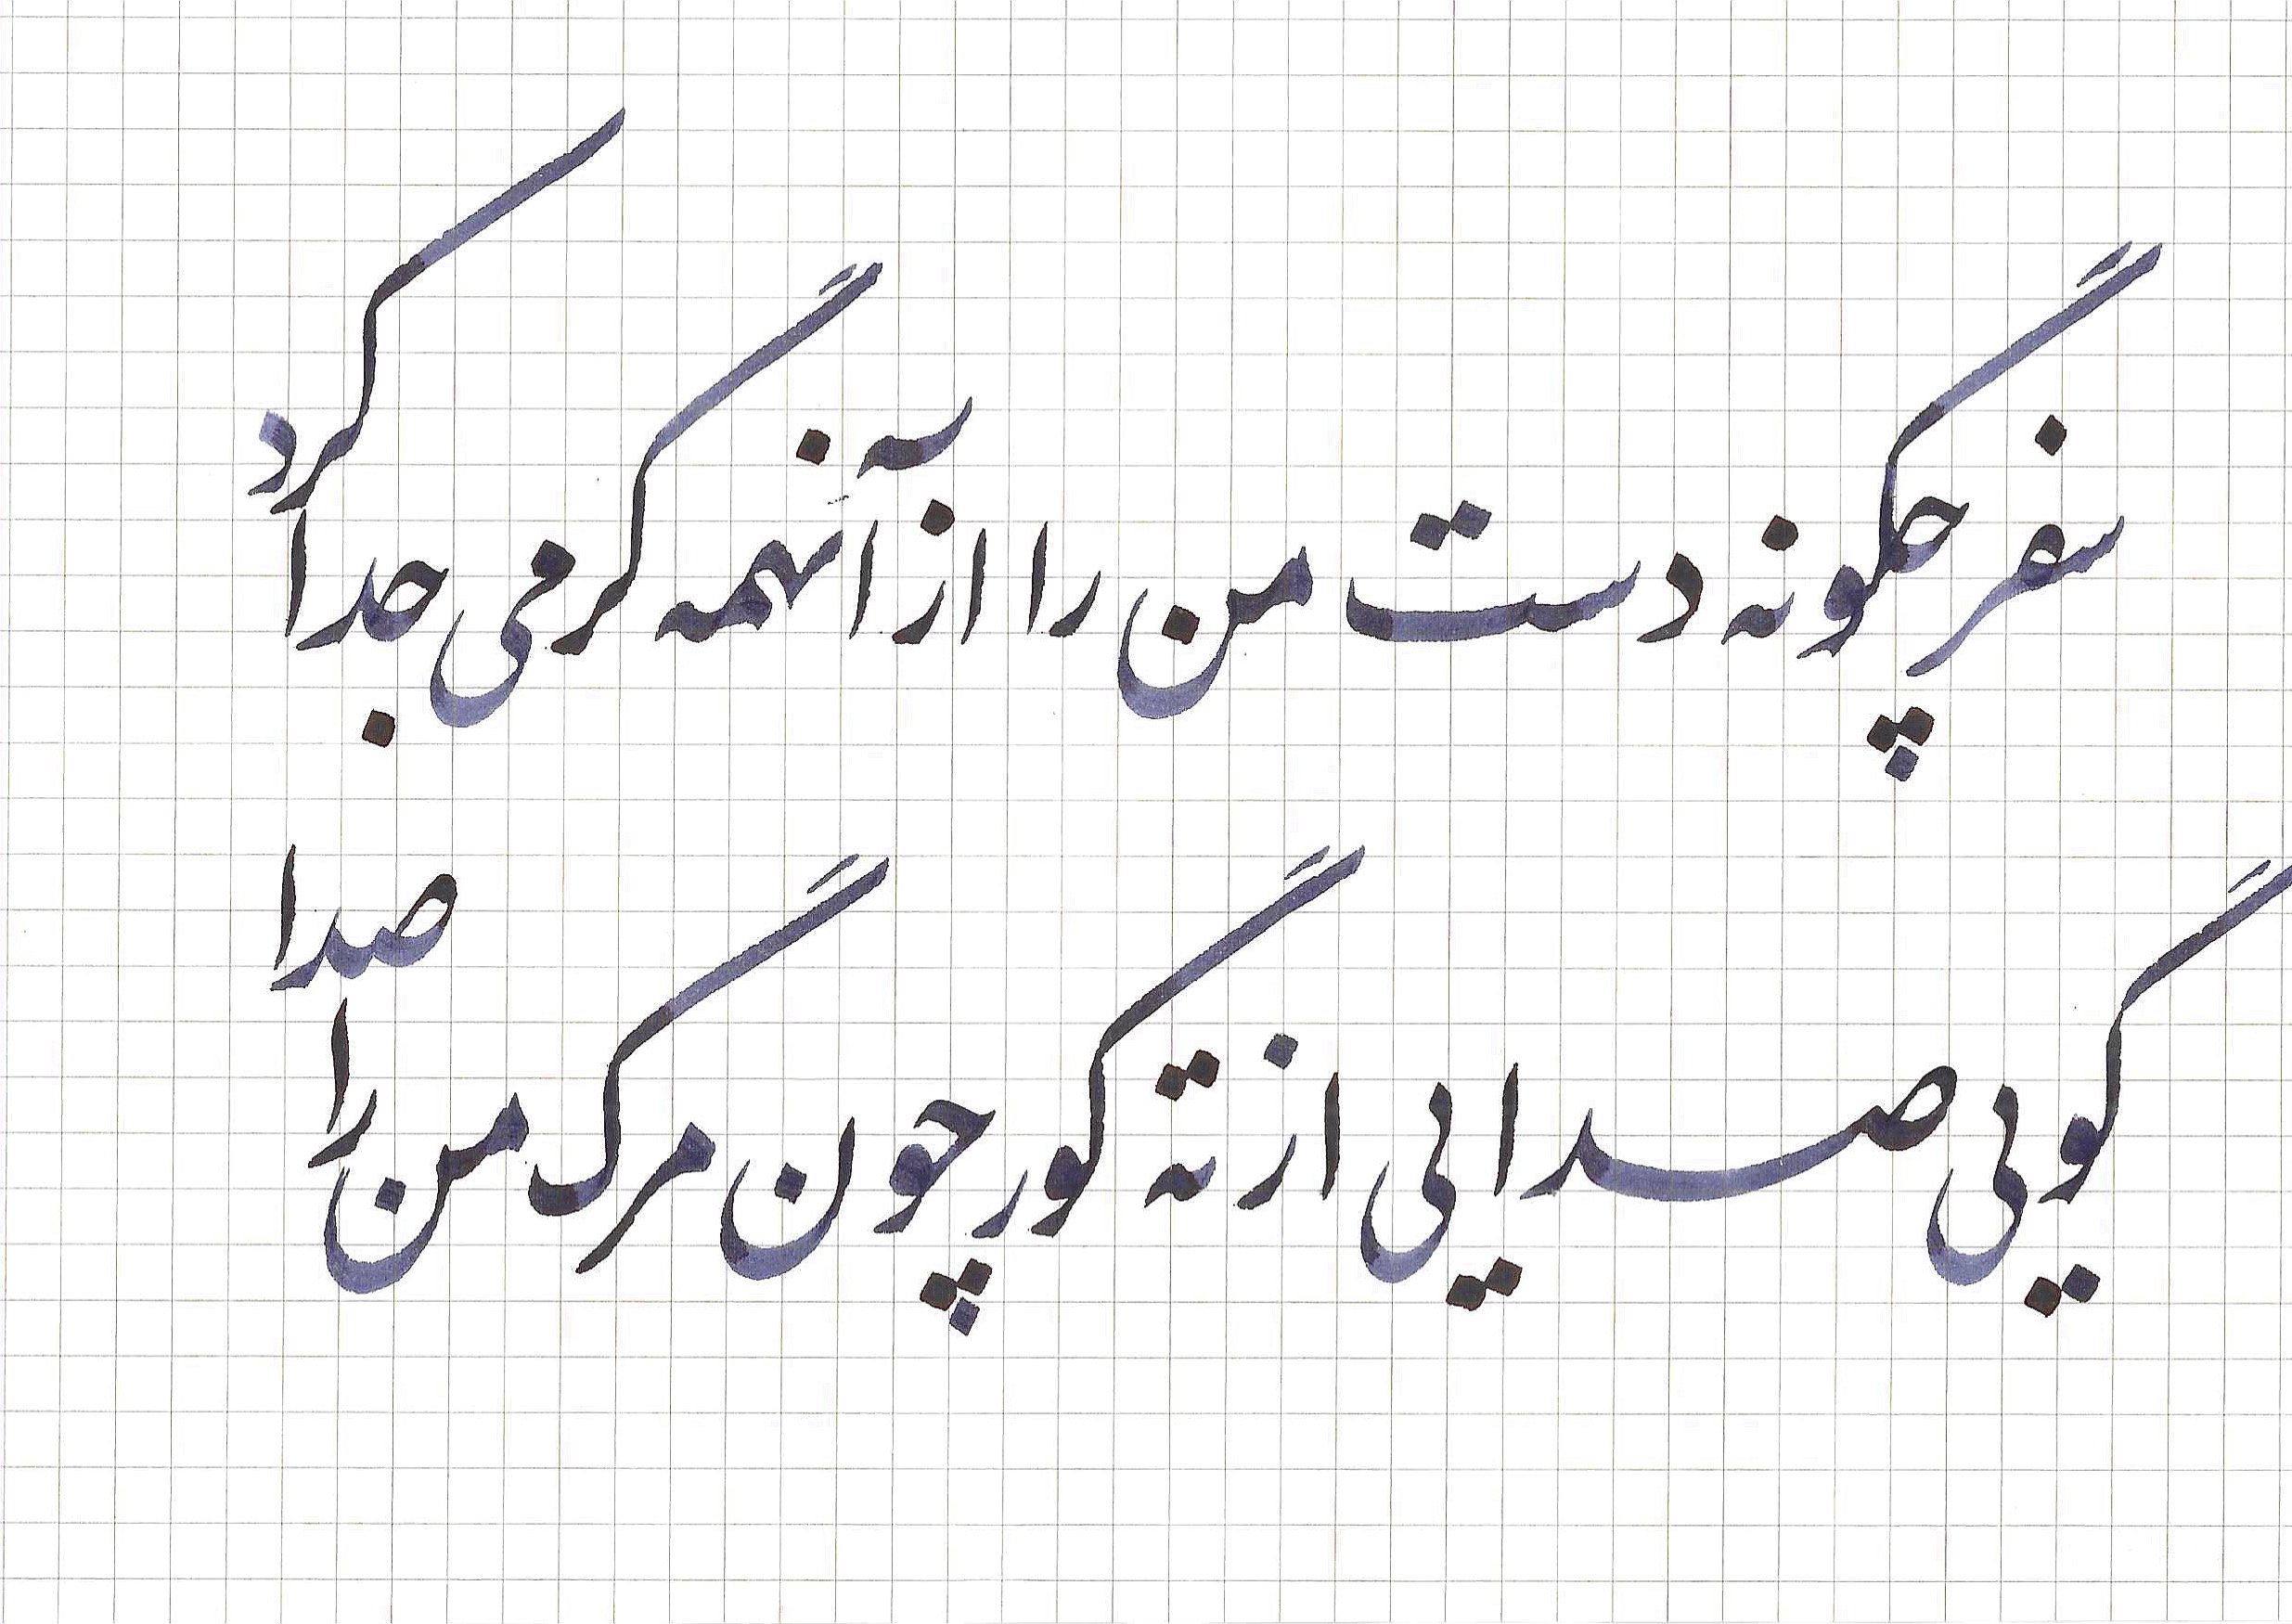 سفر چگونه دست من را از آنهمه گرمی جدا کرد
گویی صدایی از ته گور چون مرگ من را صدا